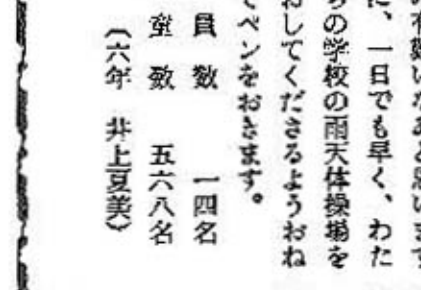 の有難いなあと思います
に、一日でも早く、わた
ちの学校の雨天体操場を
おしてくださるようおね
てペンをおきます。
員数 一四名
童数 五六八名
(六年 井上夏美)